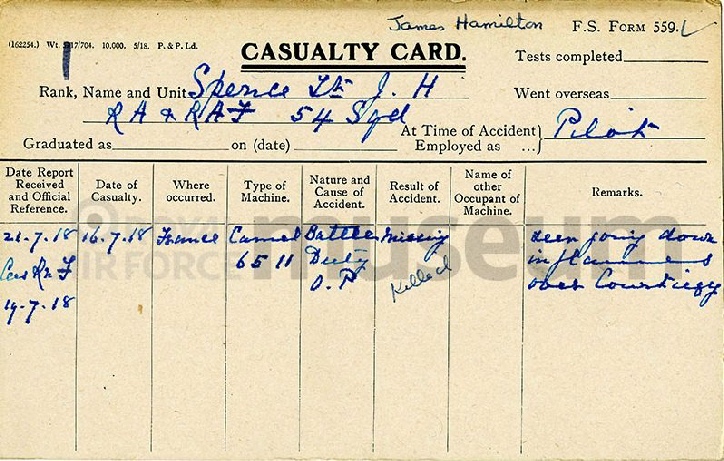 James Hamilton
F.S. Form 559.
(162254.) Wt. 5217/704. 10,000. 5/18. P. & P. Ld.
CASUALTY CARD.
Tests completed
Rank, Name and Unit Spence Lt. J. H
Went overseas
RA & RAF 54 Sqd
At Time of Accident Employed as ... Pilot
Graduated as on (date)
Date Report Received and Official Reference.
Date of Casualty.
Where occurred.
Type of Machine.
Nature and Cause of Accident.
Result of Accident.
Name of other Occupant of Machine.
Remarks.
21-7.18 16.7.18 France Camel Battle Missing seen going down
Cas F 6511 Duty Killed in flames
19-7.18 O.P over
museum